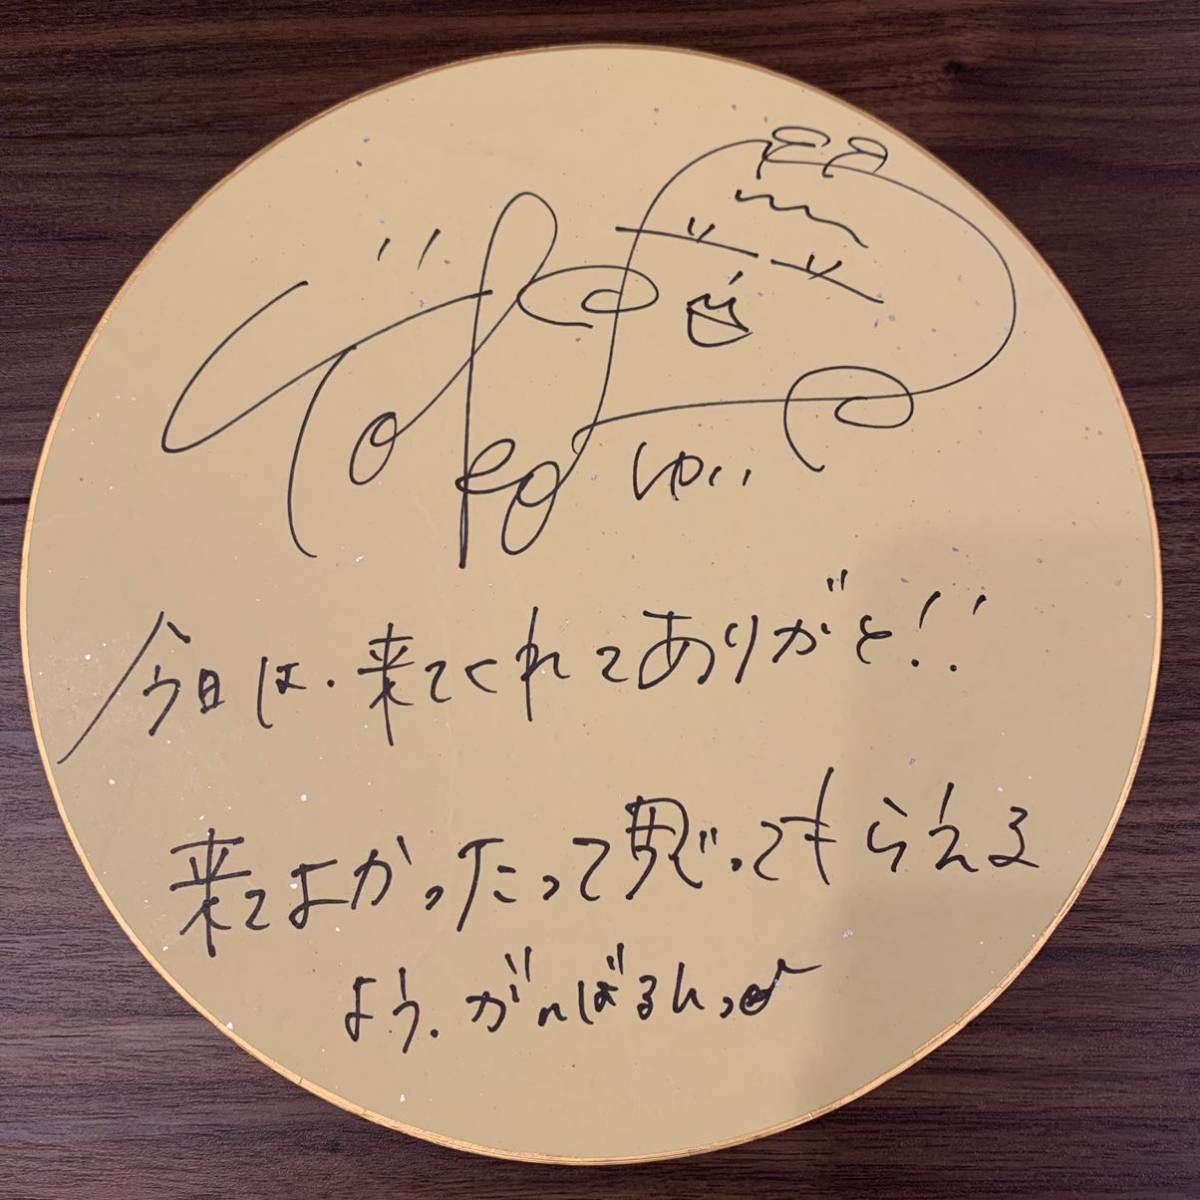 ゆい
今日は、来てくれてありがと!!
来てよかったって思ってもらえる
よう、がんばるんっ♪